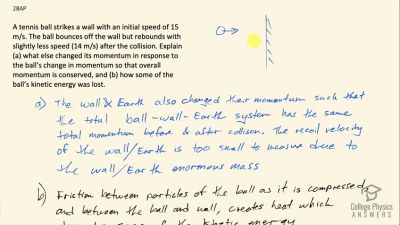 28AP
A tennis ball strikes a wall with an initial speed of 15
m/s. The ball bounces off the wall but rebounds with
slightly less speed (14 m/s) after the collision. Explain
(a) what else changed its momentum in response to
the ball's change in momentum so that overall
momentum is conserved, and (b) how some of the
ball's kinetic energy was lost.
a) The wall & Earth also changed their momentum such that
the total ball-wall-Earth system has the same
total momentum before & after collision. The recoil velocity
of the wall/Earth is too small to measure due to
the wall/Earth enormous mass
b) Friction between particles of the ball as it is compressed
and between the ball and wall, creates heat which
of the kinetic energy
College Physics
ANSWERS